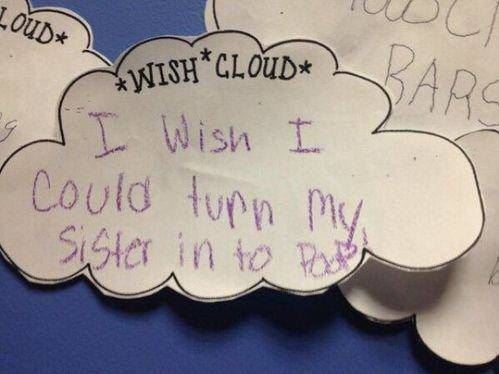 LOUD*
*WISH*CLOUD*
BARS
I Wish I
Could turn my
Sister in to Poop!